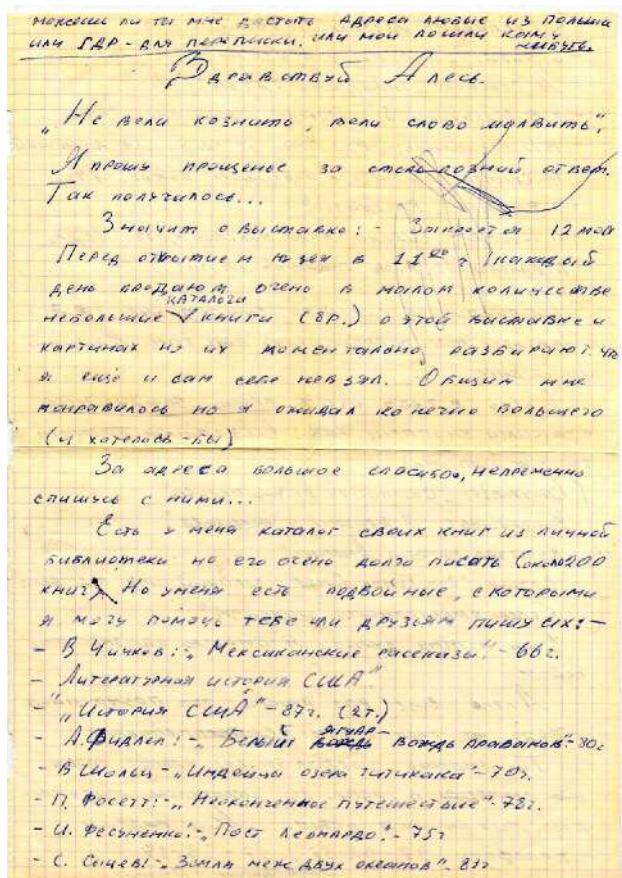 можешь ли ты мне достать адреса любые из Польши
или ГДР - для переписки. или мои пошли кому
нибудь.
Здравствуй Алесь.
"Не вели кознить, вели слово молвить",
Я прошу прощенье за столь поздний ответ.
Так получилось...
Значит о выставке: - Закроется 12 мая
Перед открытием музея в 11⁰⁰ г каждый
день продают очено в малом количестве
небольшие каталоги книги (8р.) о этой выставке и
картинах но их моментально разбирают что
я ещё и сам себе невзял. Общим мне
понравилось но я ожидал конечно большего
(и хотелось-бы)
За адреса большое спасибо, непременно
спишусь с ними...
Есть у меня каталог своих книг из личной
библиотеки но его очено долго писать (около 200
книг) Но уменя есть подвойные, с которыми
я могу помочь тебе или друзьям пишу их: -
- В Чичков: - "Мексиканские рассказы" - 66г.
- Литературная история США"
- "История США" - 87г. (2т.)
- А. Фидлер: - "Белый ягуар - вождь араваков" - 80г
- В Шольц - "Индейцы озера титикака" - 70г.
- П. Фосетт: - "Неоконченное путешествие" - 78г.
- И. Фесуненко: - "Пост Леонардо". - 75г
- С. Сычев: - "Земля меж двух океанов" - 87г